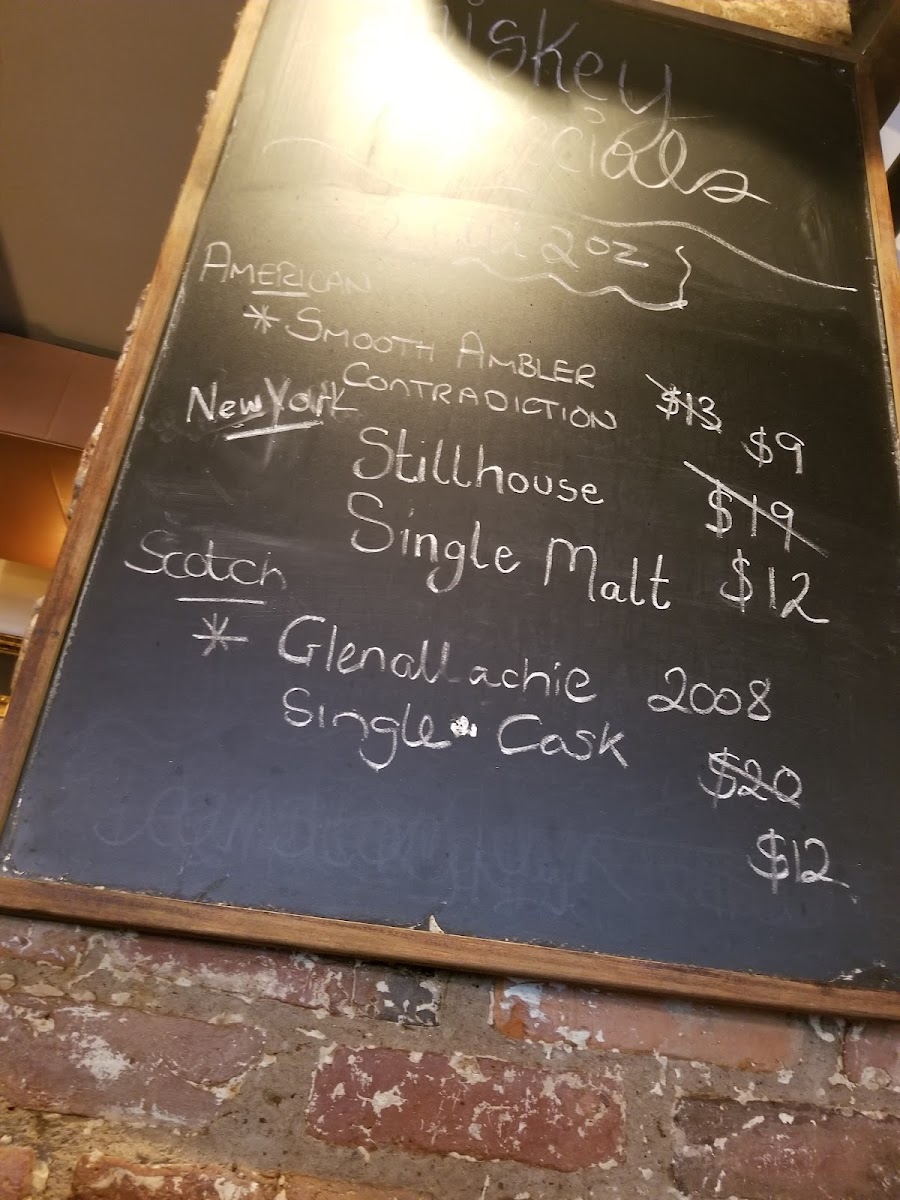 iskey
cials
2oz
AMERICAN
* SMOOTH AMBLER
CONTRADICTION $13 $9
New York
Stillhouse $19
Single Malt $12
Scotch
* Glenallachie 2008
Single Cask
$20
$12